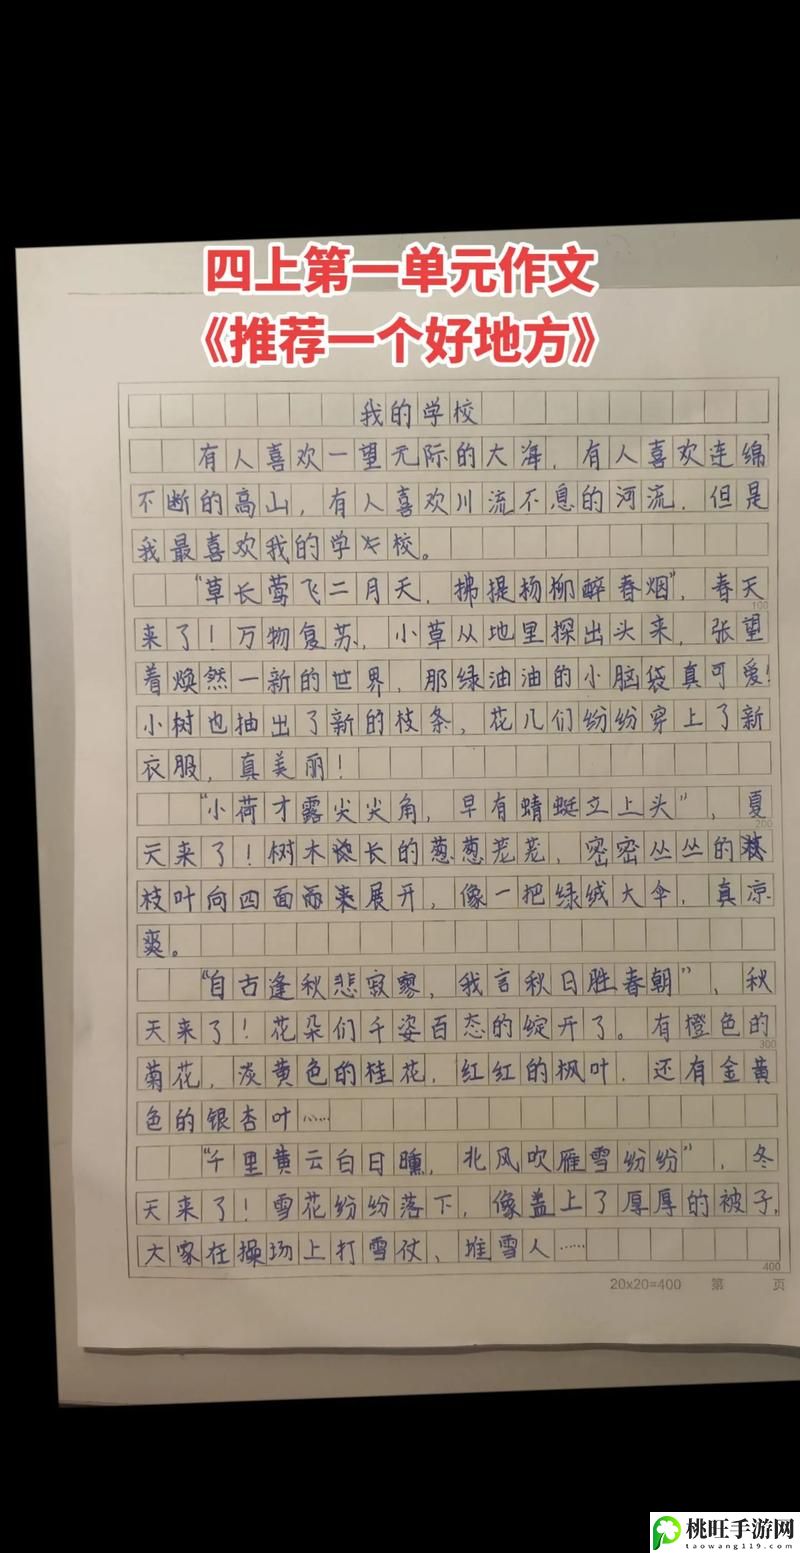 四上第一单元作文
《推荐一个好地方》
我的学校
有人喜欢一望无际的大海，有人喜欢连绵
不断的高山，有人喜欢川流不息的河流，但是
我最喜欢我的学校。
“草长莺飞二月天，拂提杨柳醉春烟”，春天
来了！万物复苏，小草从地里探出头来，张望
着焕然一新的世界，那绿油油的小脑袋真可爱！
小树也抽出了新的枝条，花儿们纷纷穿上了新
衣服，真美丽！
“小荷才露尖尖角，早有蜻蜓立上头”，夏
天来了！树木长的葱葱茏茏，密密丛丛的
枝叶向四面展开，像一把绿绒大伞，真凉
爽。
“自古逢秋悲寂寥，我言秋日胜春朝”，秋
天来了！花朵们千姿百态的绽开了。有橙色的
菊花，淡黄色的桂花，红红的枫叶，还有金黄
色的银杏叶……
“千里黄云白日曛，北风吹雁雪纷纷”，冬
天来了！雪花纷纷落下，像盖上了厚厚的被子，
大家在操场上打雪仗、堆雪人……
100
200
300
400
20x20=400 第 页
桃旺手游网
taowang119.com